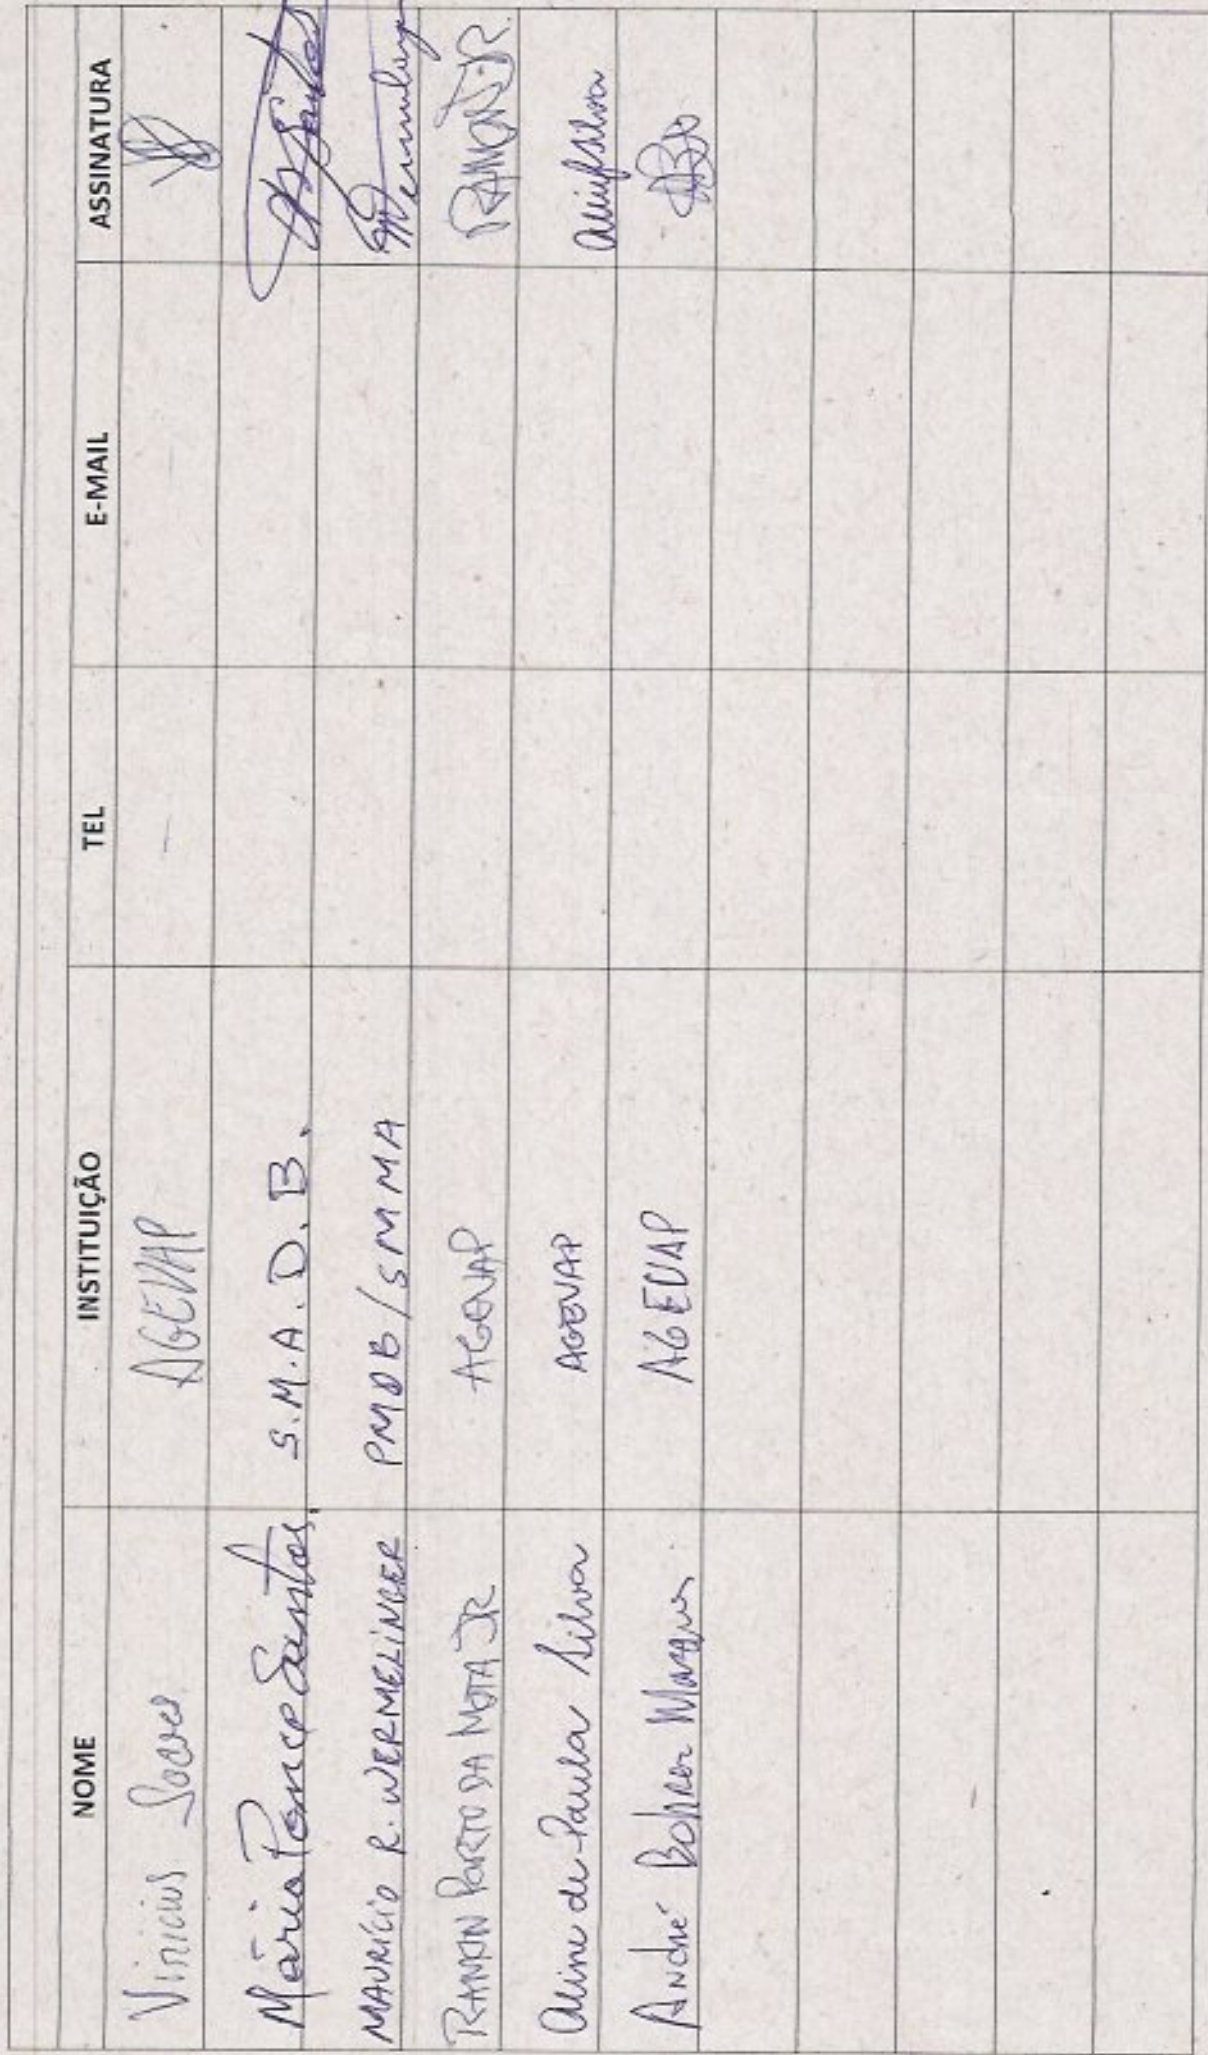 NOME INSTITUIÇÃO TEL E-MAIL ASSINATURA
Vinicius Soares AGEVAP
Mário Ponce Santos. S.M.A.D.B. Santos
MAURÍCIO R. WERMELINGER PMDB/SMMA Wermelinger
RAMON PORTO DA MOTA JR AGEVAP RAMON JR.
Aline de Paula Silva AGEVAP Aline Silva
André Bohrer Marques AGEVAP